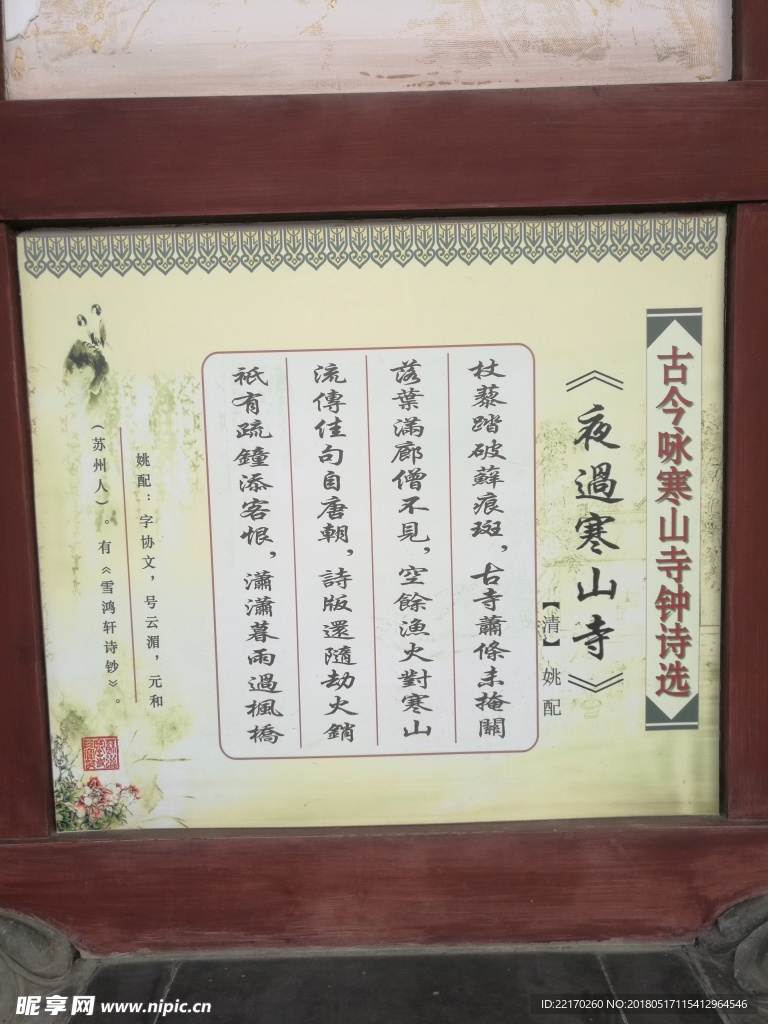 古今咏寒山寺钟诗选
《夜過寒山寺》
【清】姚配
杖藜踏破蘚痕斑，古寺蕭條未掩關
落葉滿廊僧不見，空餘漁火對寒山
流傳佳句自唐朝，詩版還隨劫火銷
祇有疏鐘添客恨，瀟瀟暮雨過楓橋
姚配：字协文，号云湄，元和
（苏州人）。有《雪鸿轩诗钞》。
昵享网 www.nipic.cn
ID:22170260 NO:20180517115412964546